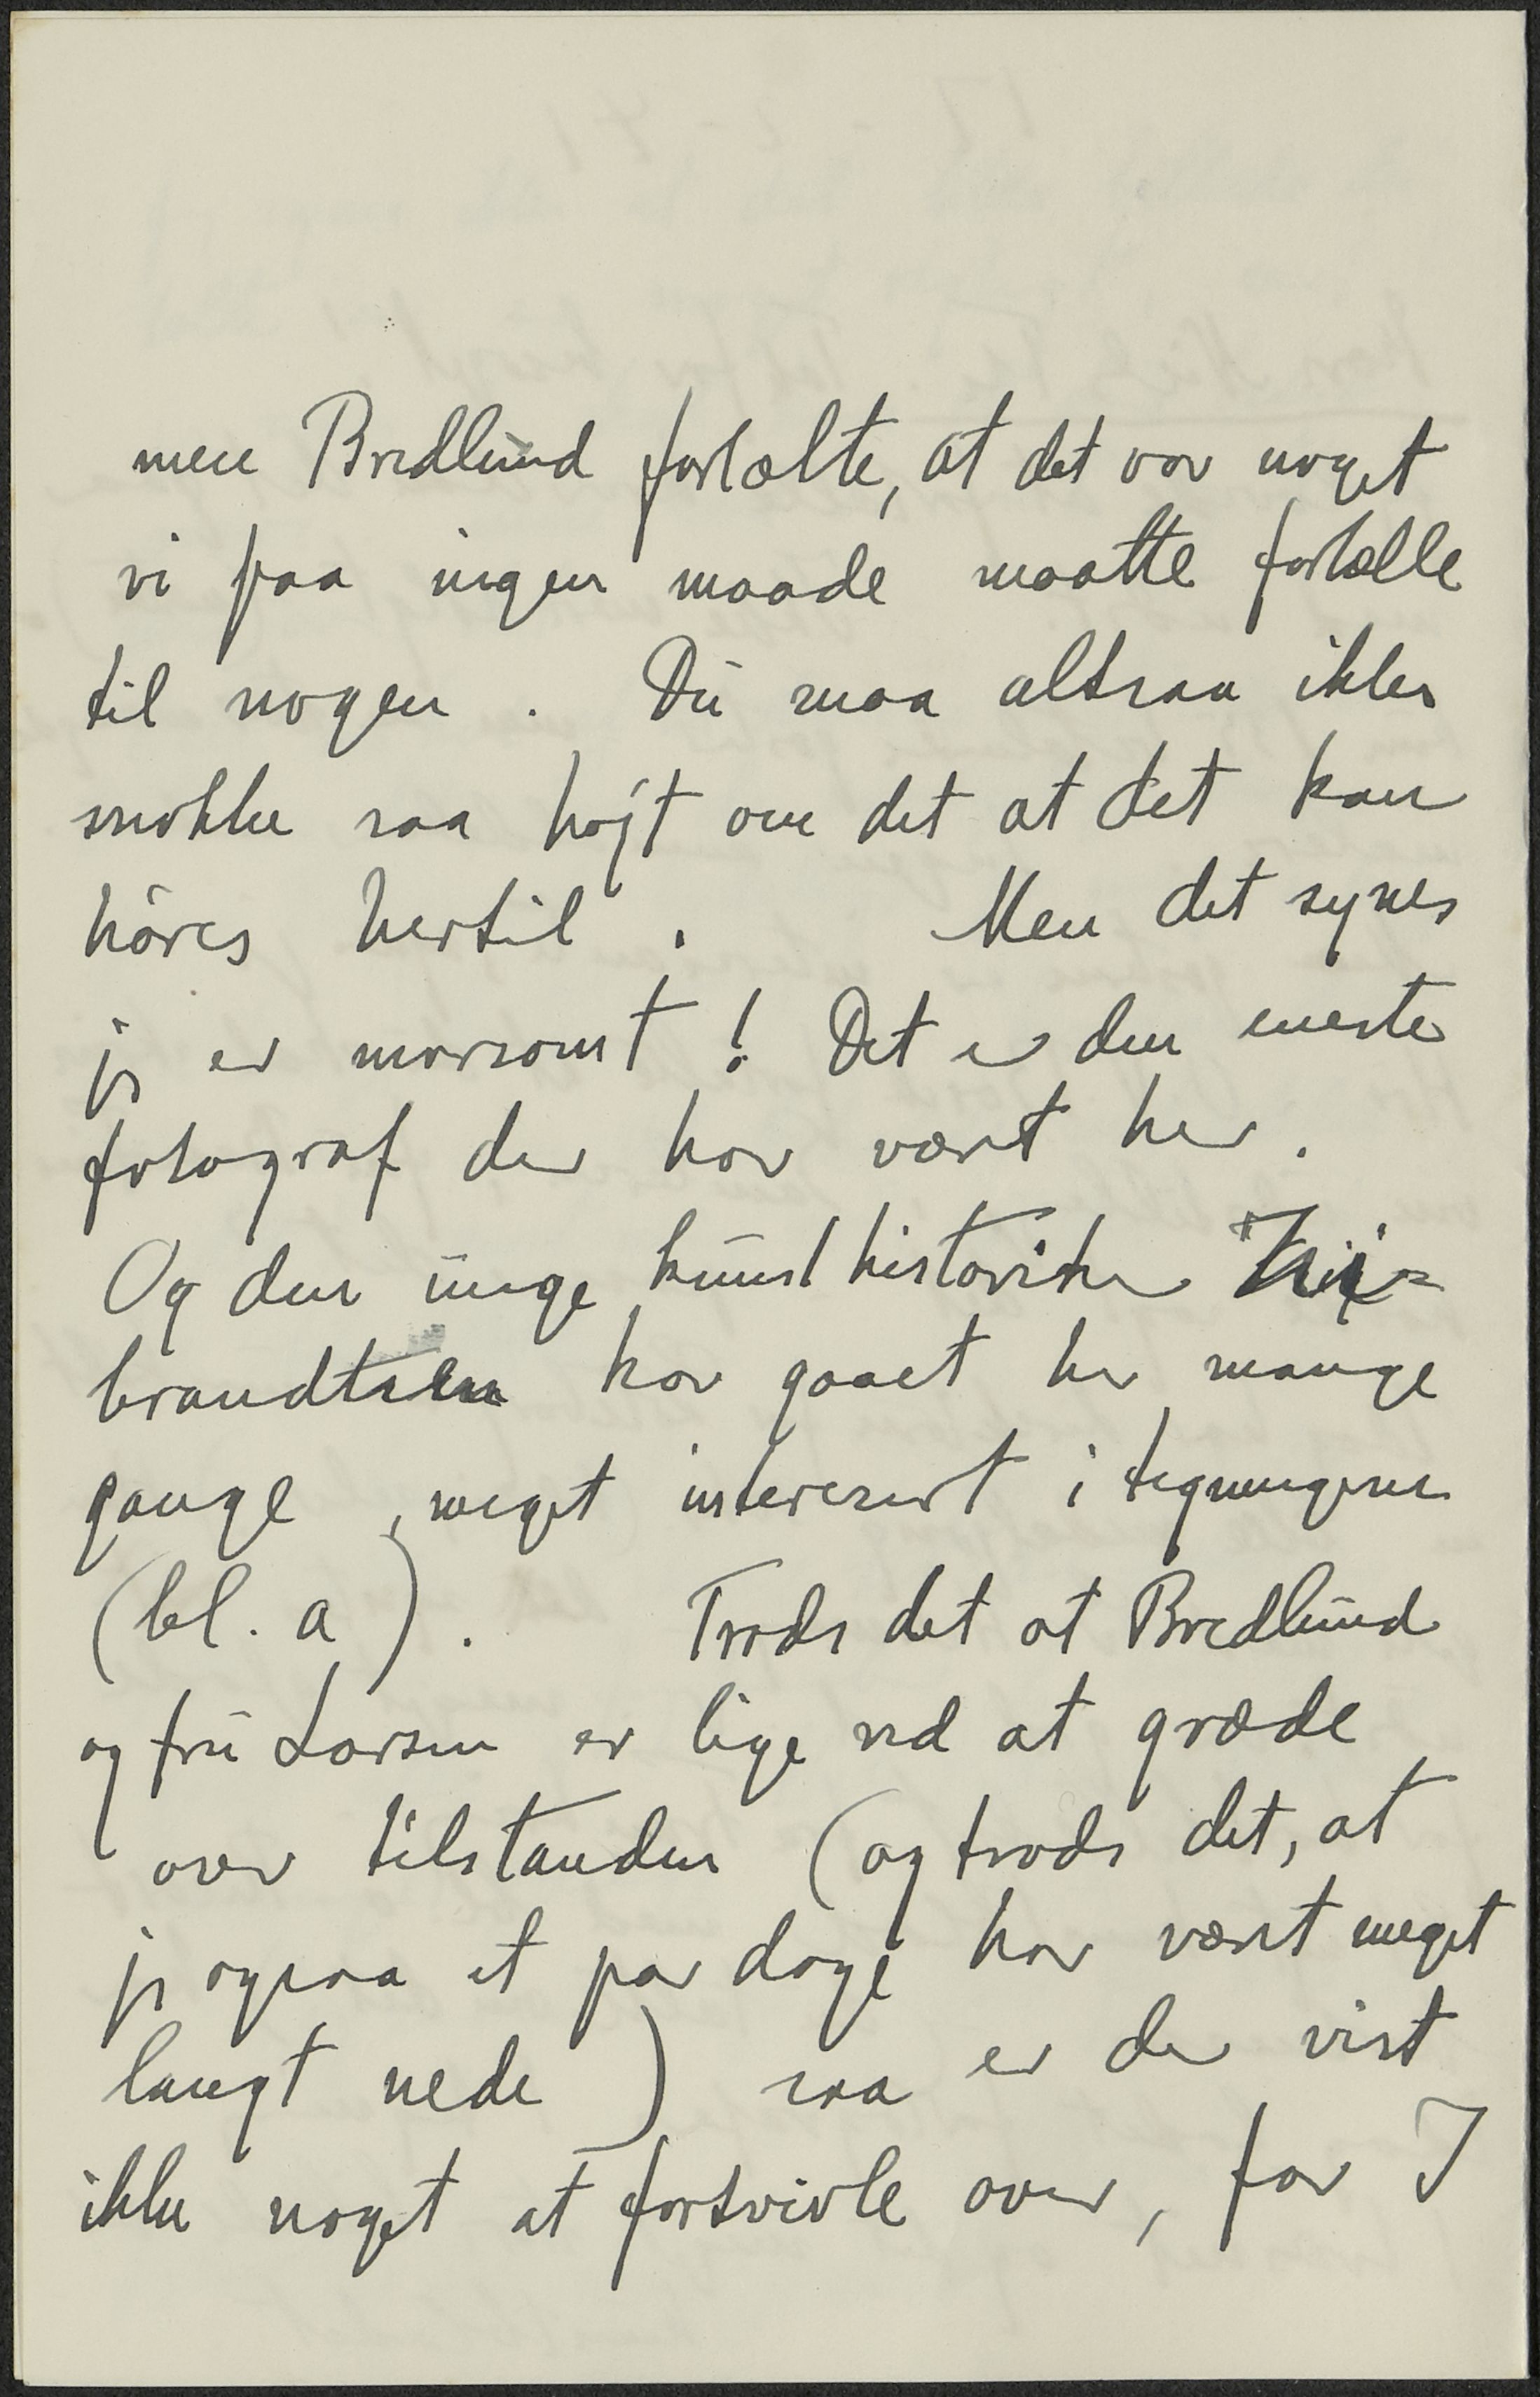 men Bredlund fortalte, at det var noget
vi paa ingen maade maatte fortælle
til nogen. Du maa altsaa ikke
snakke saa højt om det at det kan
høres hertil. Men det synes
jeg er morsomt! Det er den eneste
fotograf der har været her.
Og den unge kunsthistoriker
brandtsen har gaaet her mange
gange, meget interesert i tegningerne
(bl. a). Trods det at Bredlund
og fru Larsen er lige ved at græde
over tilstanden (og trods det, at
jeg ogsaa et par dage har været meget
langt nede) saa er der vist
ikke noget at fortvivle over, for I